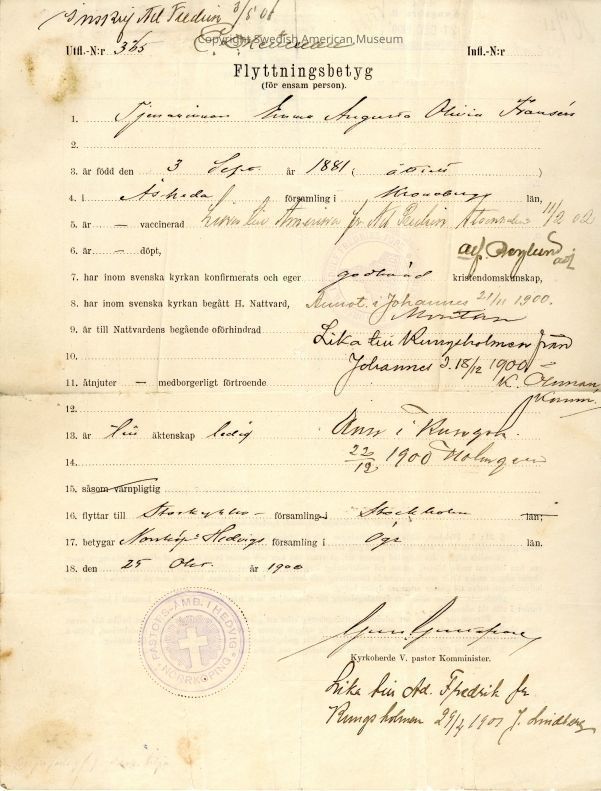 3/5 01
Copyright Swedish American Museum
Utfl.-N:r 325
Infl.-N:r
Flyttningsbetyg
(för ensam person).
1. Tjenarinnan Emma Augusta Olivia Fransén
2.
3. är född den 3 Sept. år 1881 (åttiett
4. i Åsheda församling i Kronoberg län,
5. är — vaccinerad Lika till Amerika fr Ad. Fredrik 11/2 02
6. är — döpt,
7. har inom svenska kyrkan konfirmerats och eger godkänd kristendomskunskap,
8. har inom svenska kyrkan begått H. Nattvard, Annot. i Johannes 21/11 1900.
9. är till Nattvardens begående oförhindrad
Lika till Kungsholmen från
10.
Johannes d. 18/12 1900
11. åtnjuter — medborgerligt förtroende
K. Öhman
12.
13. är till äktenskap ledig
Ann. i Kungsh.
14.
22/12 1900 Holmgren
15. såsom värnpligtig
16. flyttar till församling i Stockholm län;
17. betygar Norrköp:s Hedvigs församling i Ög: län.
18. den 25 Okt. år 1900
PASTORS-ÄMB. I HEDVIG
NORRKÖPING
Kyrkoherde V. pastor Komminister.
Lika till Ad. Fredrik fr
Kungsholmen 29/4 1901 J. Lindberg